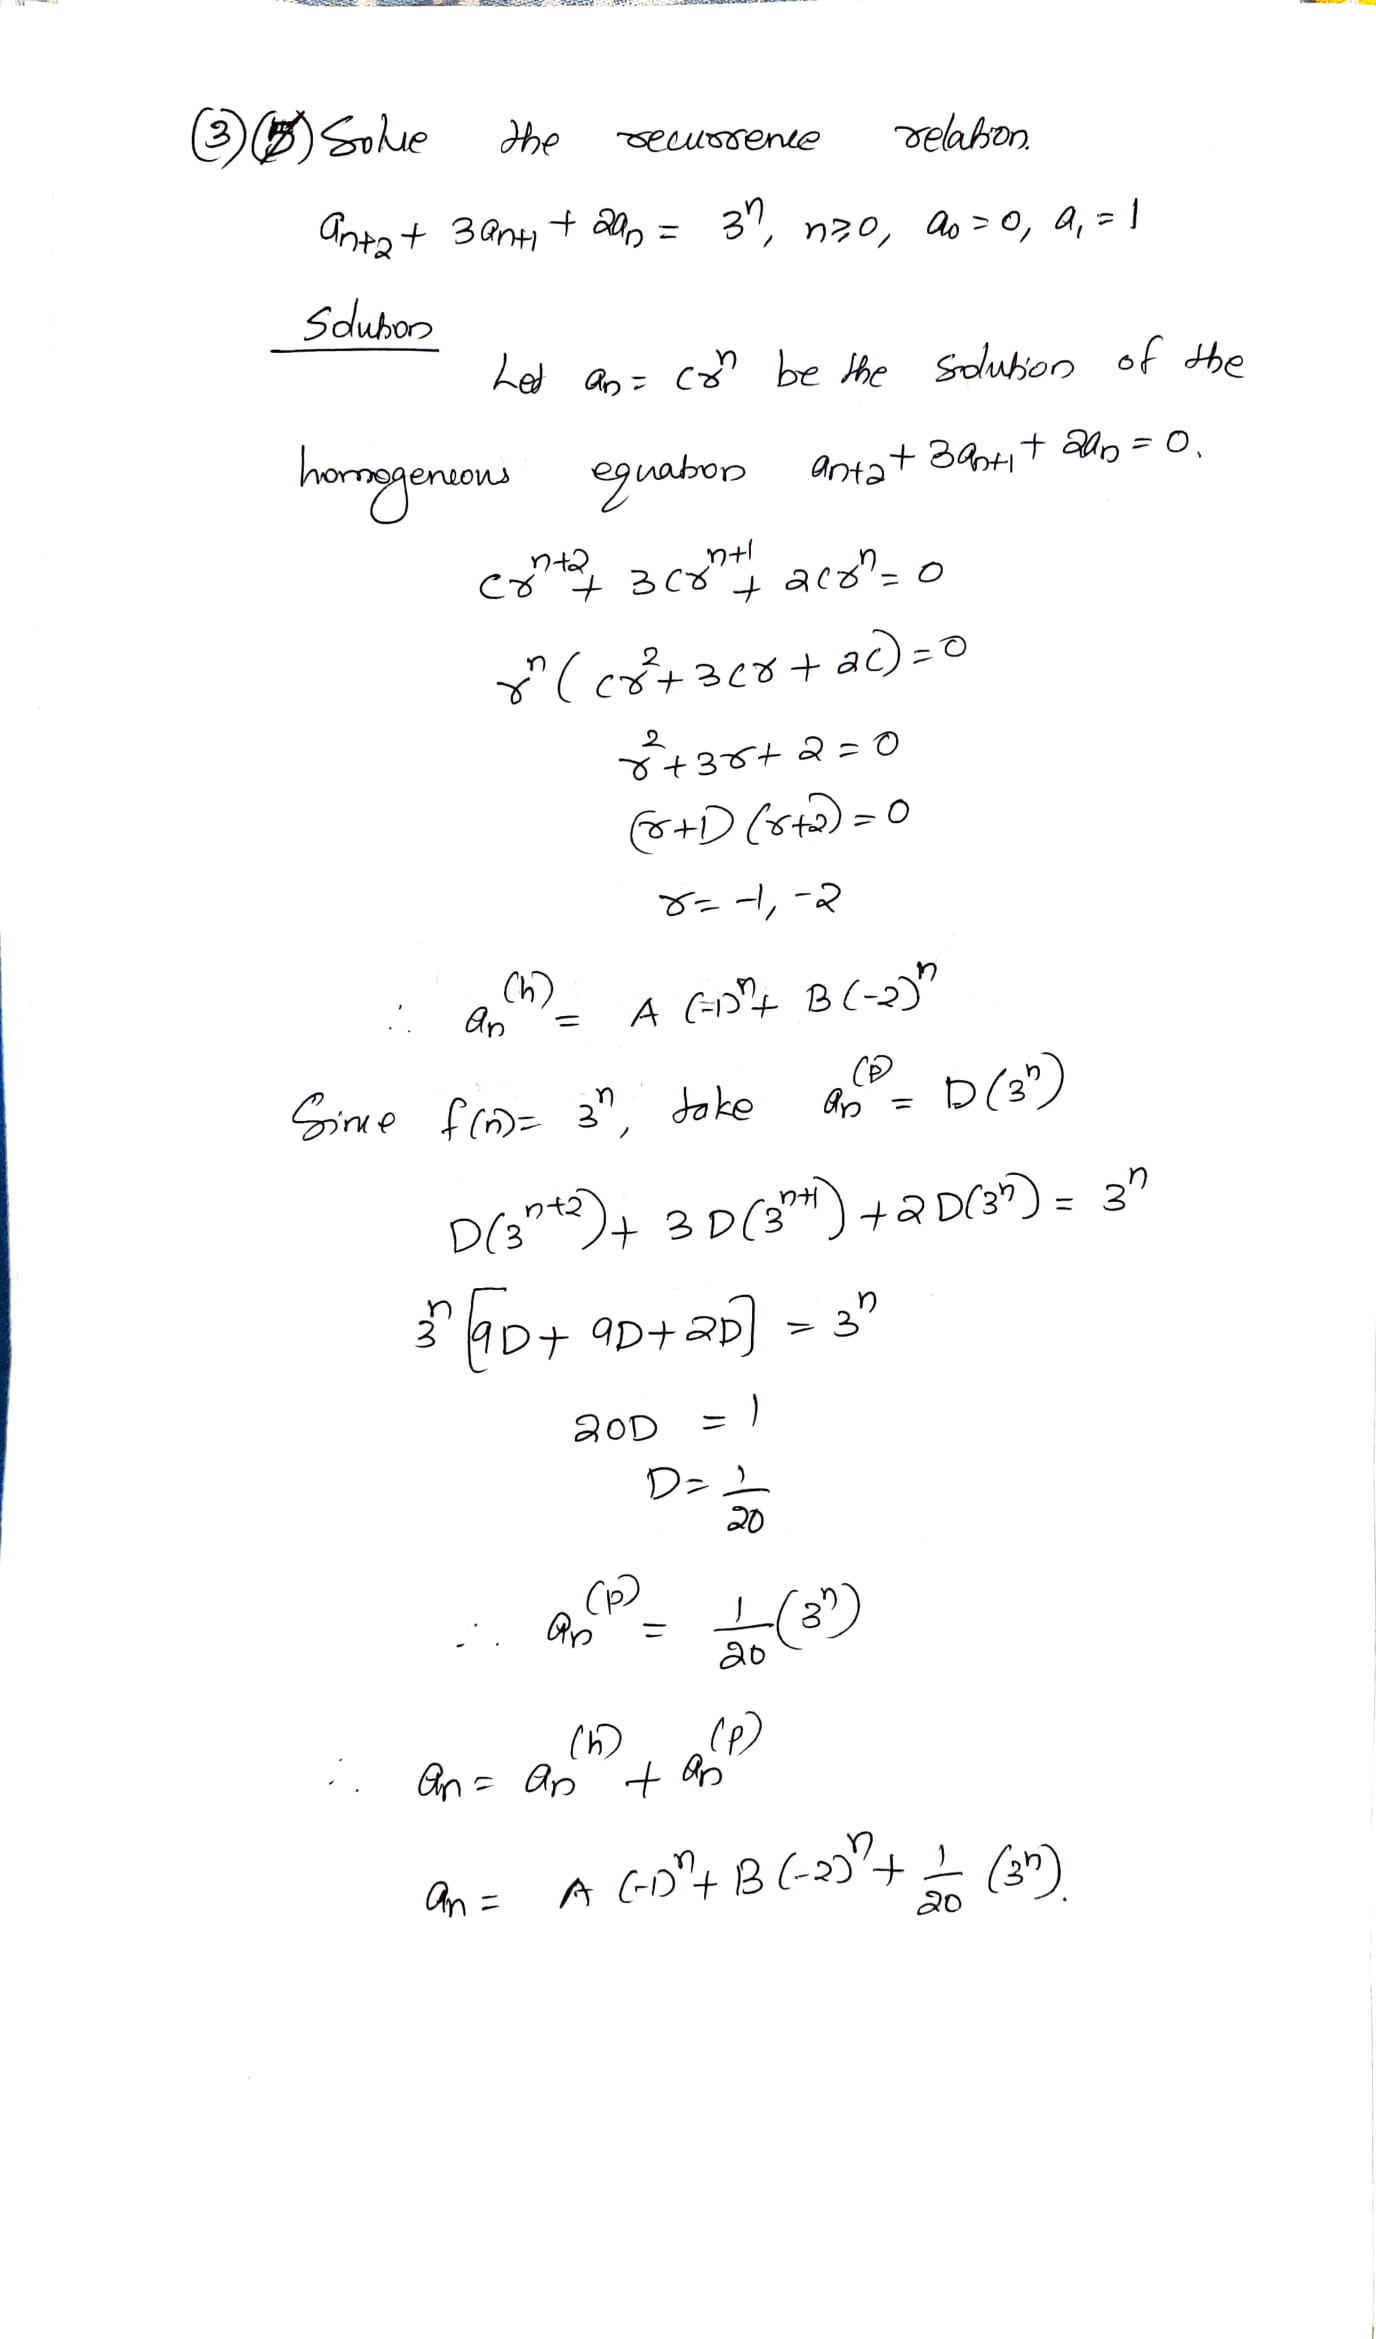 ③ Solve the recurrence relation.
aₙ₊₂ + 3aₙ₊₁ + 2aₙ = 3ⁿ, n≥0, a₀ = 0, a₁ = 1
Solution
Let aₙ = crⁿ be the solution of the
homogeneous equation aₙ₊₂ + 3aₙ₊₁ + 2aₙ = 0.
crⁿ⁺² + 3crⁿ⁺¹ + 2crⁿ = 0
rⁿ(cr² + 3cr + 2c) = 0
r² + 3r + 2 = 0
(r+1)(r+2) = 0
r = -1, -2
∴ aₙ⁽ʰ⁾ = A(-1)ⁿ + B(-2)ⁿ
Since f(n) = 3ⁿ, take aₙ⁽ᵖ⁾ = D(3ⁿ)
D(3ⁿ⁺²) + 3D(3ⁿ⁺¹) + 2D(3ⁿ) = 3ⁿ
3ⁿ[9D + 9D + 2D] = 3ⁿ
20D = 1
D = 1/20
∴ aₙ⁽ᵖ⁾ = 1/20 (3ⁿ)
∴ aₙ = aₙ⁽ʰ⁾ + aₙ⁽ᵖ⁾
aₙ = A(-1)ⁿ + B(-2)ⁿ + 1/20 (3ⁿ).